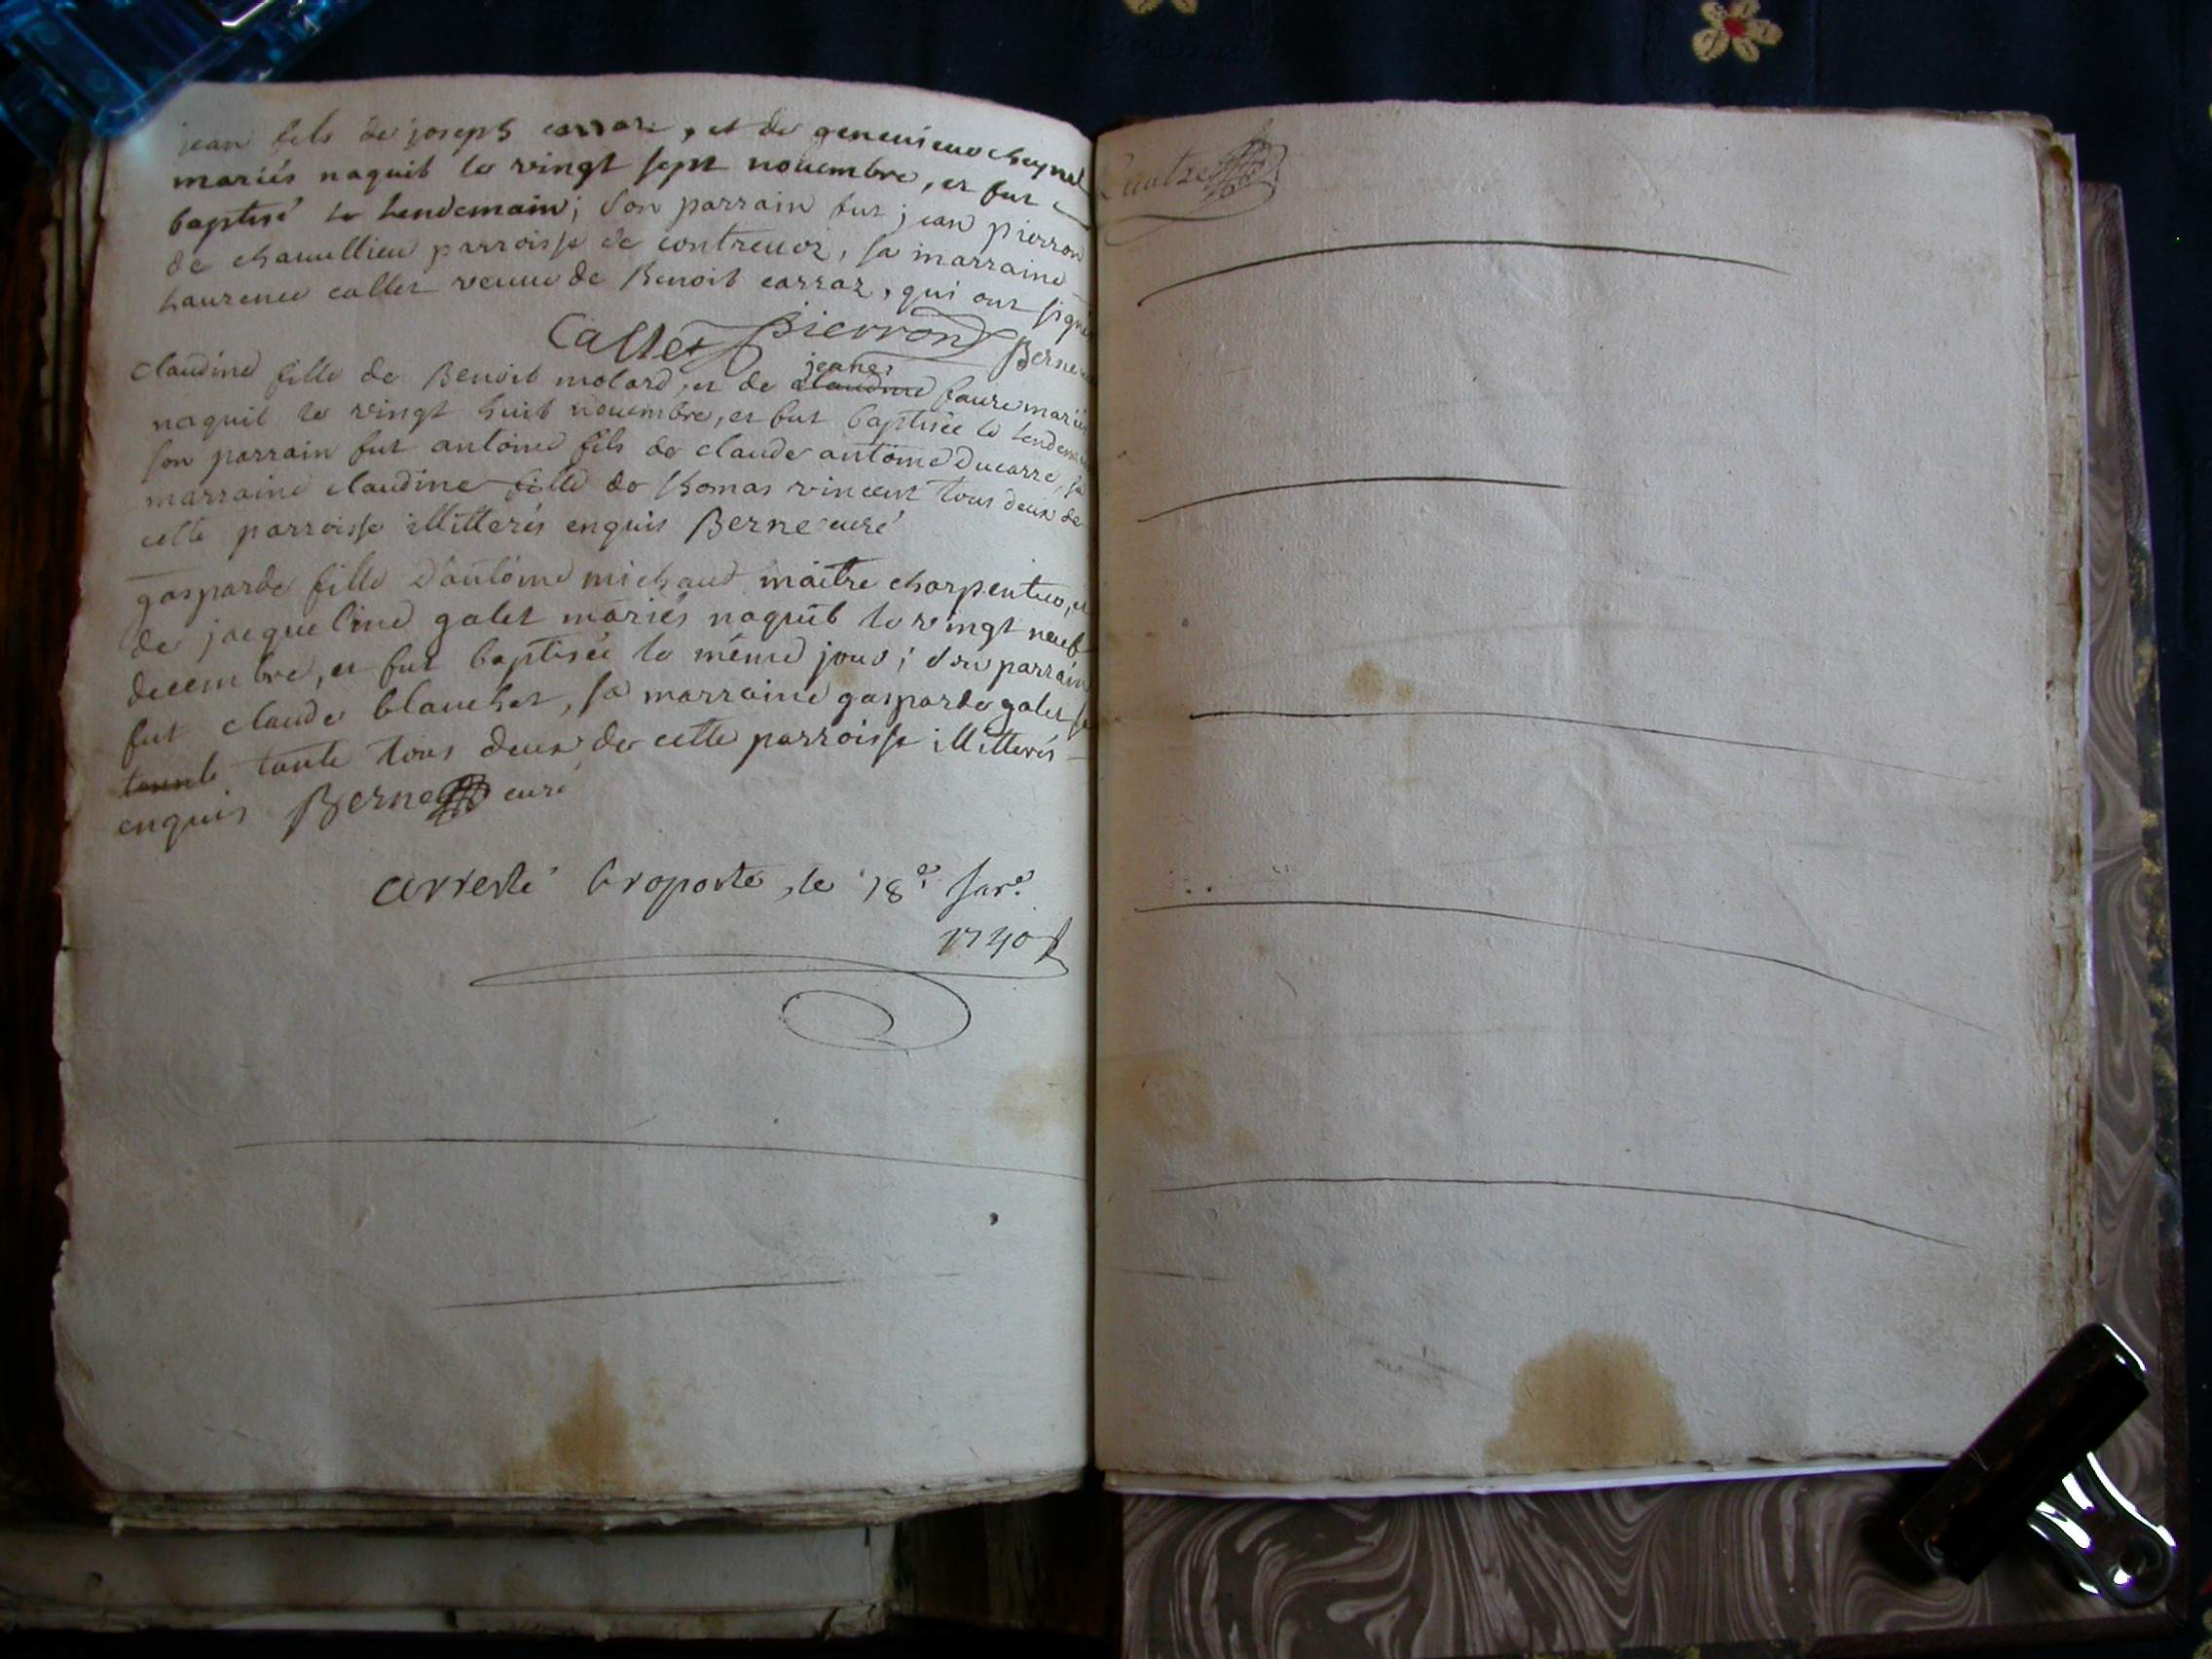 jean fils de joseph carraz, et de genevieve cheynel
mariés naquit le vingt sept novembre, et fut
baptisé le lendemain; son parrain fut jean pierron
de chavillieu parroisse de contrevoz, sa marraine
Laurence callet veuve de Benoit carraz, qui ont signé
Callet pierron Berne
claudine fille de Benoit molard, et de claudine jeane faure mariés
naquit le vingt huit novembre, et fut baptisée le lendemain
son parrain fut antoine fils de claude antoine Ducarre, sa
marraine claudine fille de thomas vincent tous deux de
cette parroisse illitterés enquis Berne curé
gasparde fille d'antoine michaud maître charpentier, et
de jacqueline galet mariés naquit le vingt neuf
decembre, et fut baptisée le même jour; son parrain
fut claude blanchet, sa marraine gasparde galet sa
tante tous deux de cette parroisse illitterés
enquis Berne curé
arresté le 18e Janv.
1740